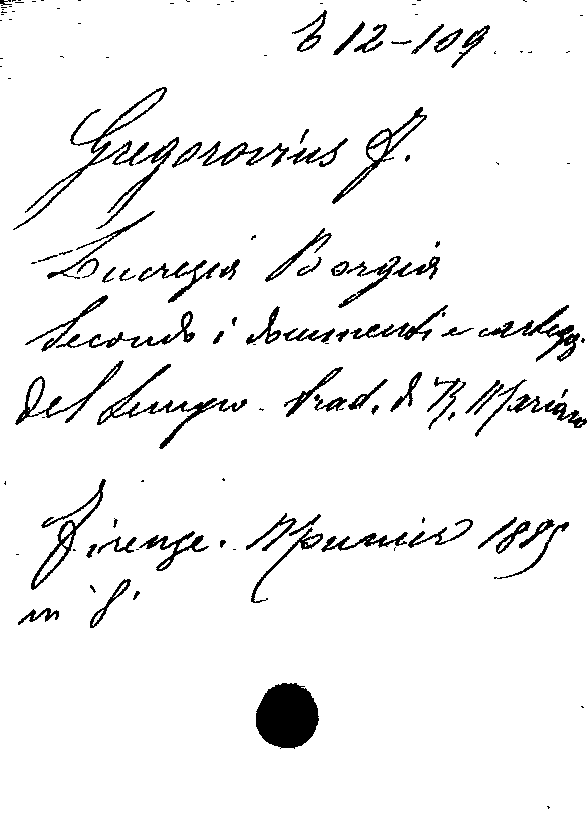 b 12-109
Gregorovius F.
Lucrezia Borgia
Secondo i documenti e carteg.
del tempo. Trad. di R. Mariano
Firenze. Mounier 1885
in 8°